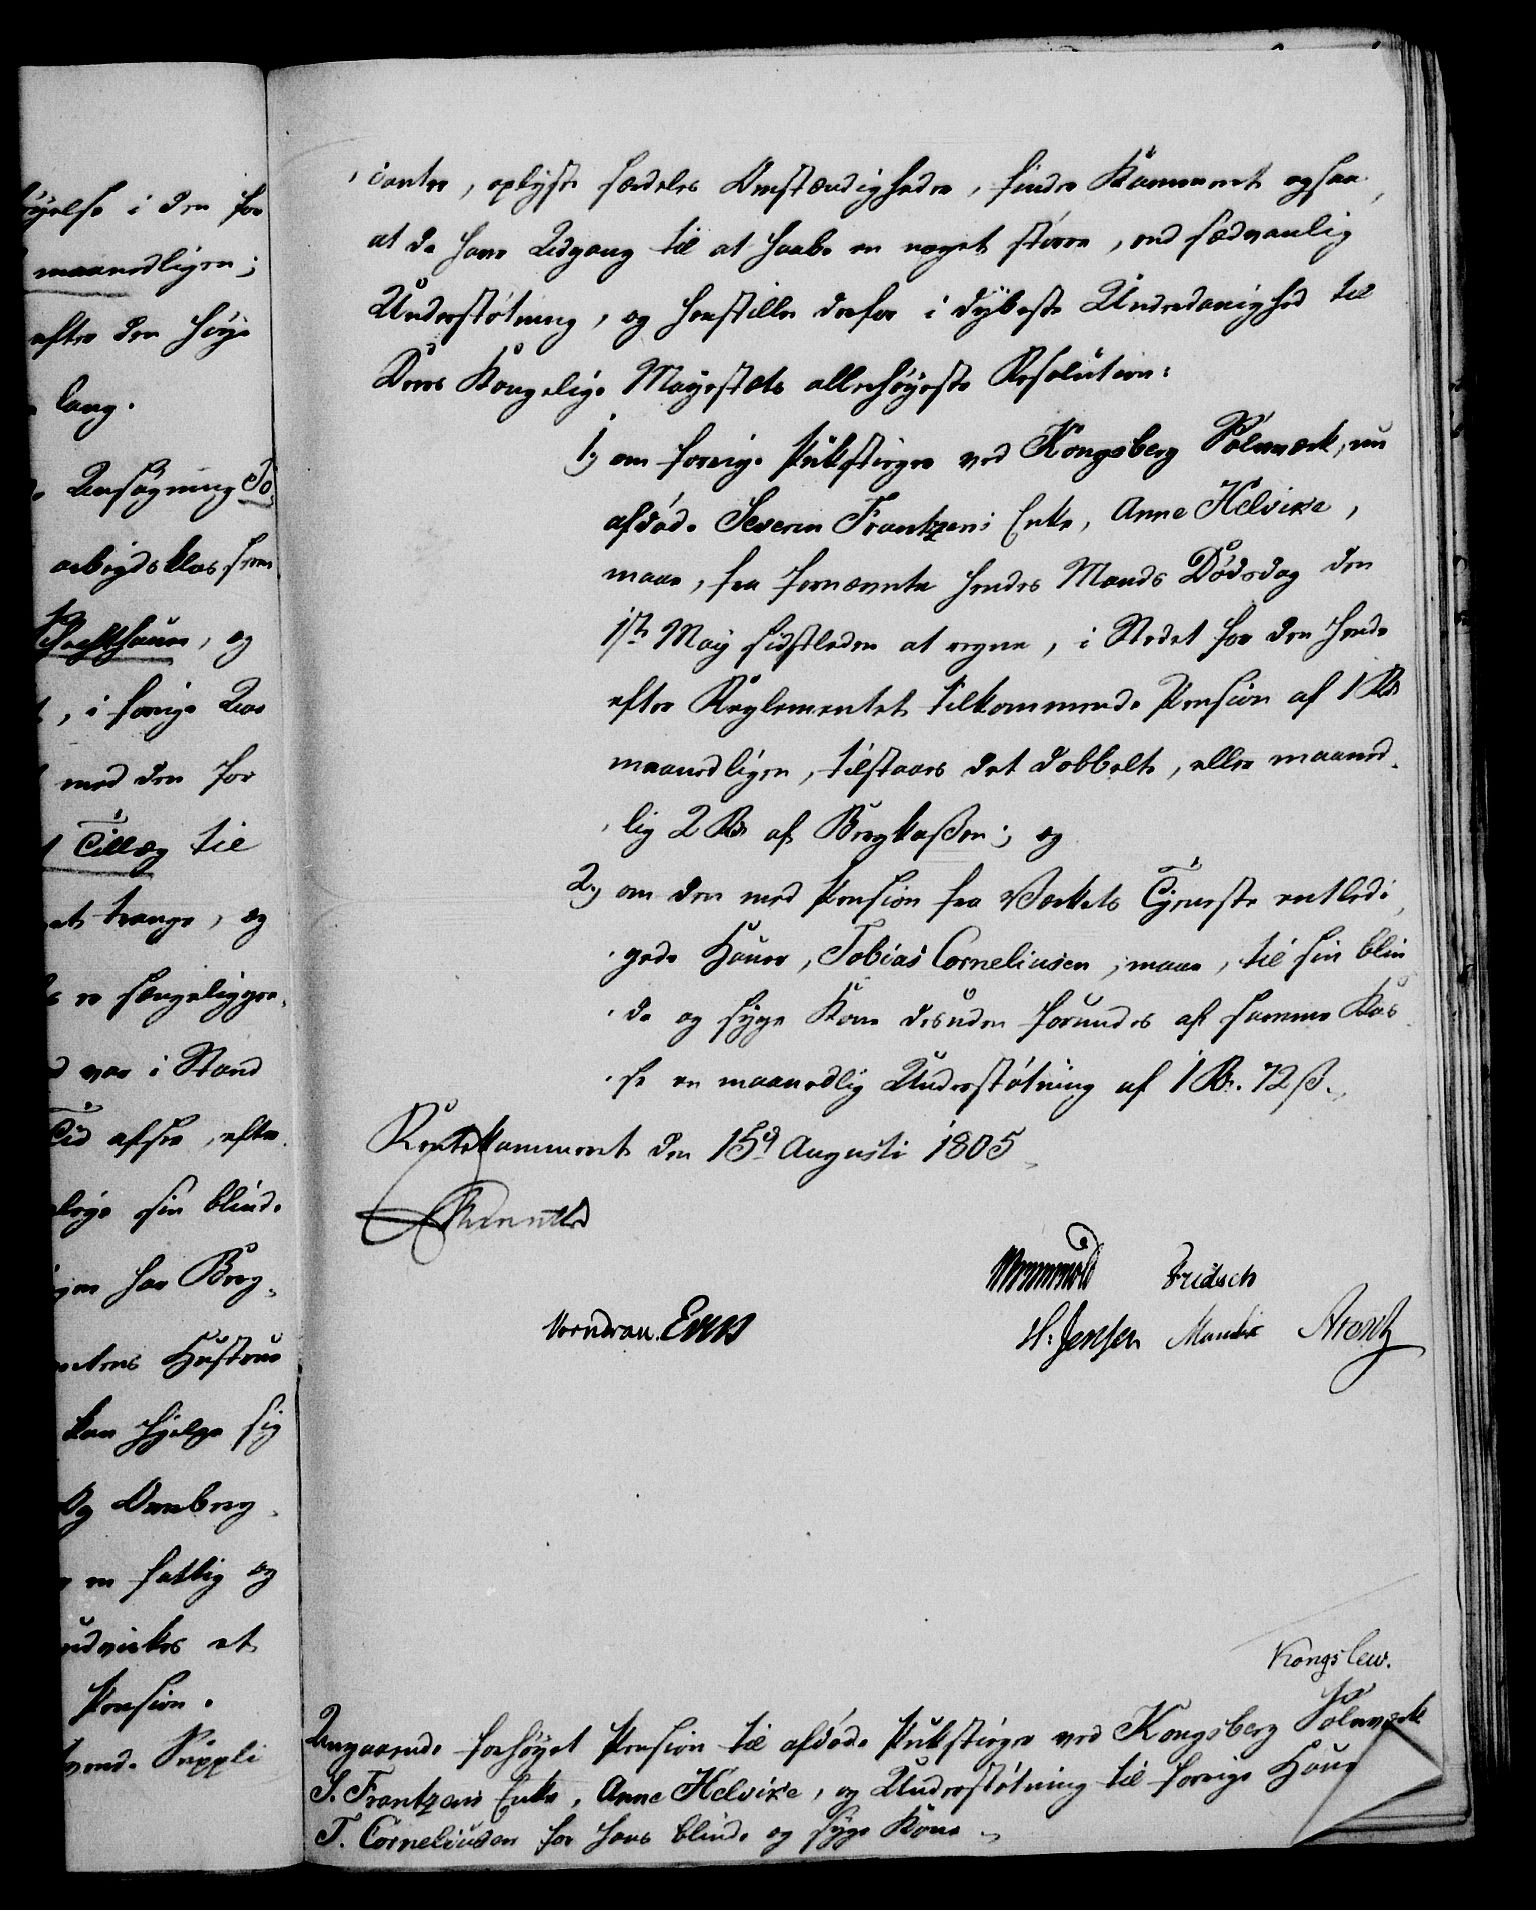 yelse i den for
maanedligen;
efter den høye
lang.
Ansøgning To
arbeydsløs frem
Bechthauer, og
, i forrige Aar
med den for
Tillæg til
et trange, og
er sengeliggen
d var i Stand
Tid afsee, efter
pleye sin blinde
gen har Berg
ntens Hustrue
kan hjelpe sig
Og Ombring
en fattig og
udvirkes et
Pension.
vend. Suppli
canter, oplyste særdeles Omstændigheder, finder Kammeret ogsaa
at de have Adgang til at haabe en noget større, end sædvanlig
Understøtning, og henstiller derfor i dybeste Underdanighed til
Deres Kongelige Mayestæts allerhøyeste Resolution:
1) om forrige Pukstiger ved Kongsberg Sølvværk, nu
afdøde Severin Frantzens Enke, Anne Helvike,
maae, fra fornævnte hendes Mands Dødsdag den
1ste May sidstleden at regne, i Stedet for den hende
efter Reglementet tilkommende Pension af 1 Rd
maanedligen, tilstaaes det dobbelte, eller maaned
lig 2 Rd af Bergkaßen; og
2) om den med Pension fra Værkets Tjeneste entledi
gede Hauer, Tobias Corneliusen, maae, til sin blin
de og syge Kone desuden forundes af samme Kas
se en maanedlig Understøtning af 1 Rd. 72 ß.
Rentekammeret den 15d Augusti 1805
Fridsch
H. Jensen Arentz
Kongslew.
Angaaende forhøyet Pension til afdøde Pukstiger ved Kongsberg Sølvværk
S. Frantzens Enke, Anne Helvike, og Understøtning til forrige Hauer
T. Corneliusen for hans blinde og syge Kone